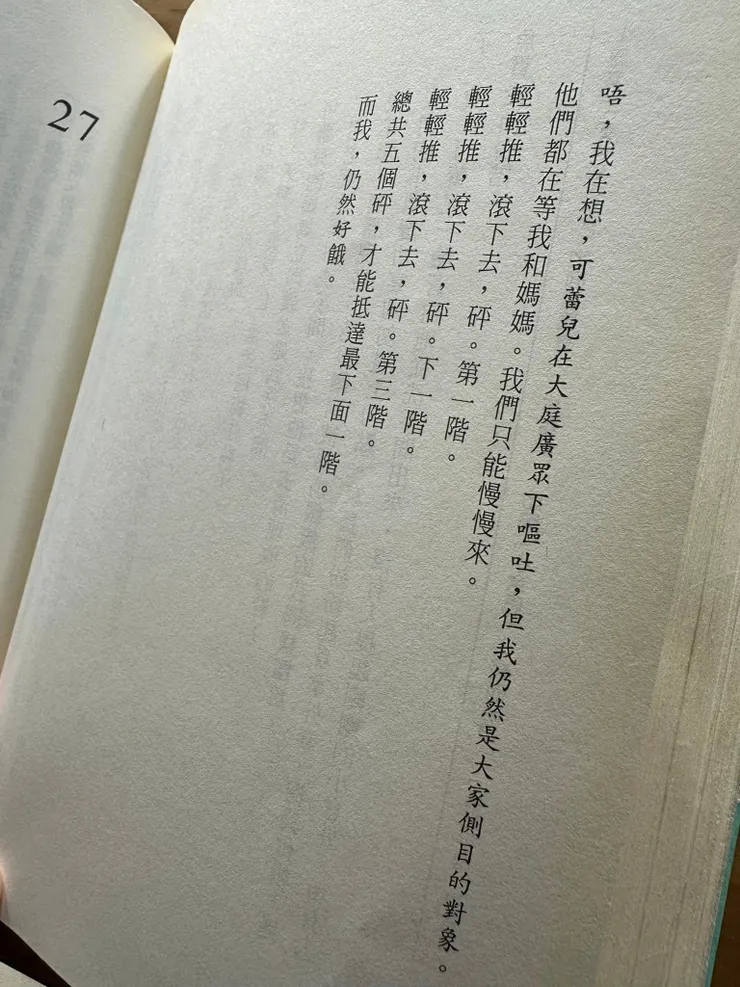 唔，我在想，可蕾兒在大庭廣眾下嘔吐，但我仍然是大家側目的對象。
他們都在等我和媽媽。我們只能慢慢來。
輕輕推，滾下去，砰。第一階。
輕輕推，滾下去，砰。下一階。
輕輕推，滾下去，砰。第三階。
總共五個砰，才能抵達最下面一階。
而我，仍然好餓。
27